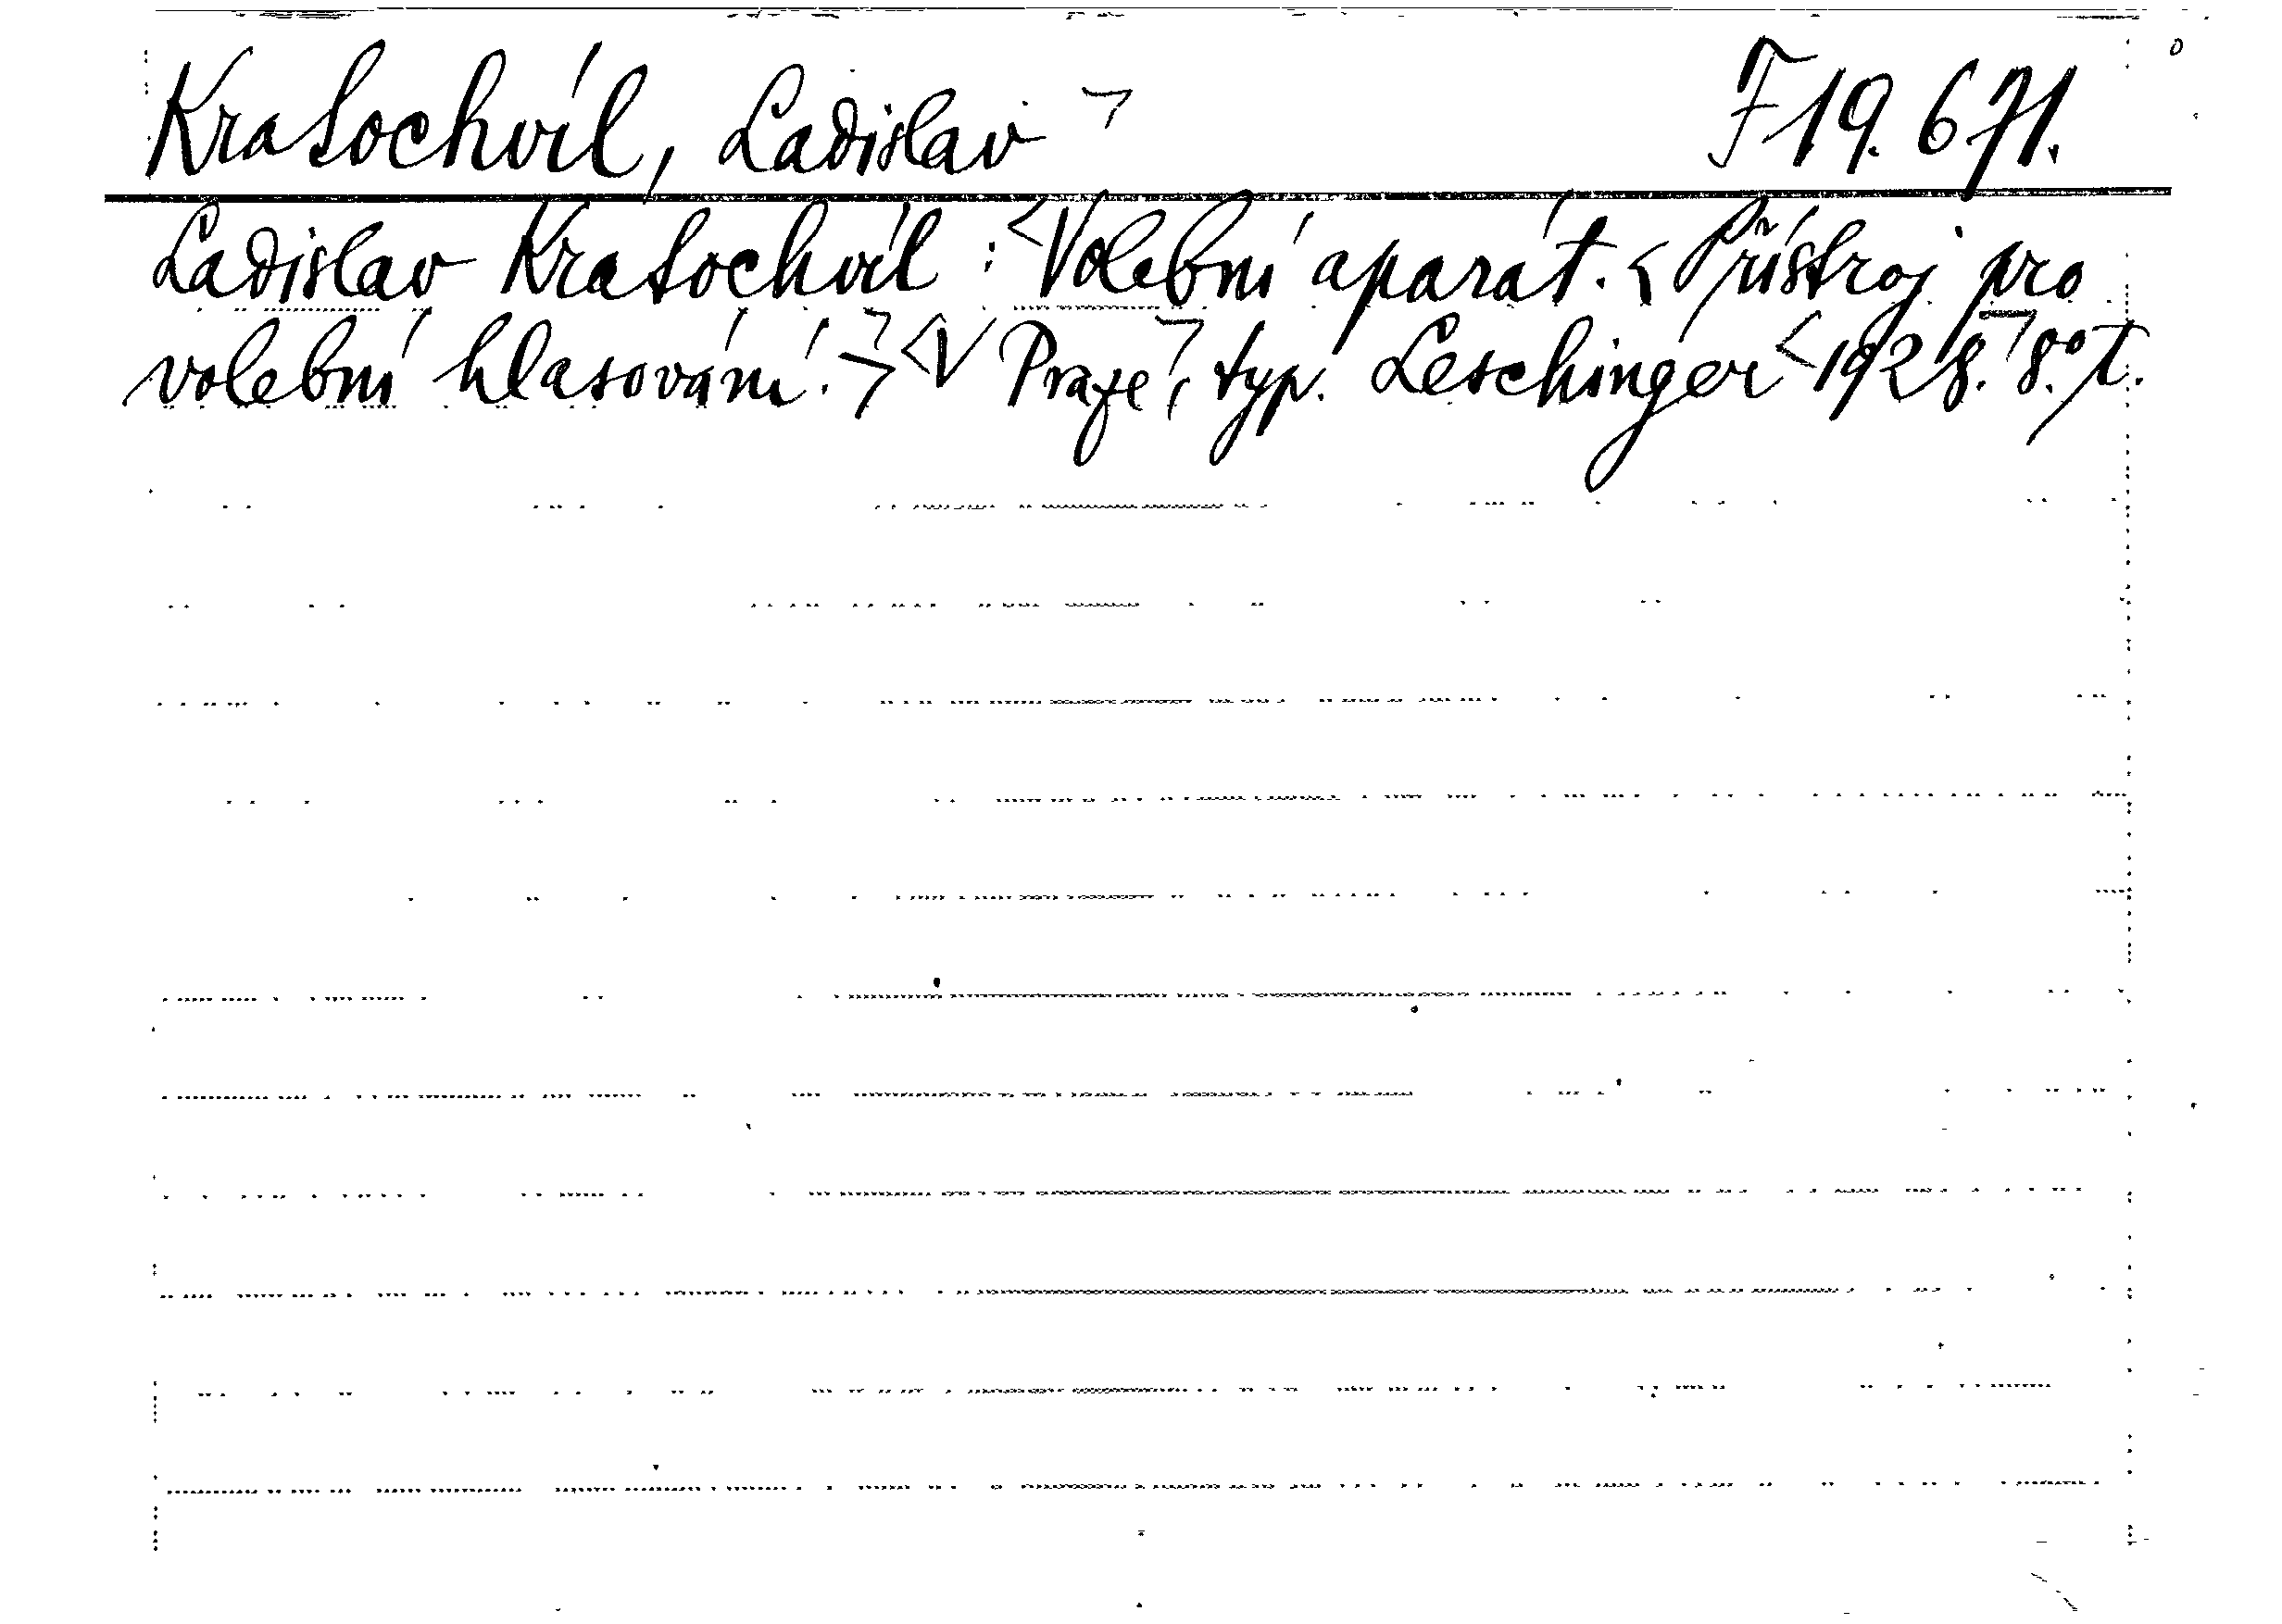 Kratochvíl, Ladislav ¬ F 19.671.
Ladislav Kratochvíl : <Volební aparát. < Přístroj pro
volební hlasování. ¬> <V Praze¬, typ. Leschinger <1928.¬ 8.° T.